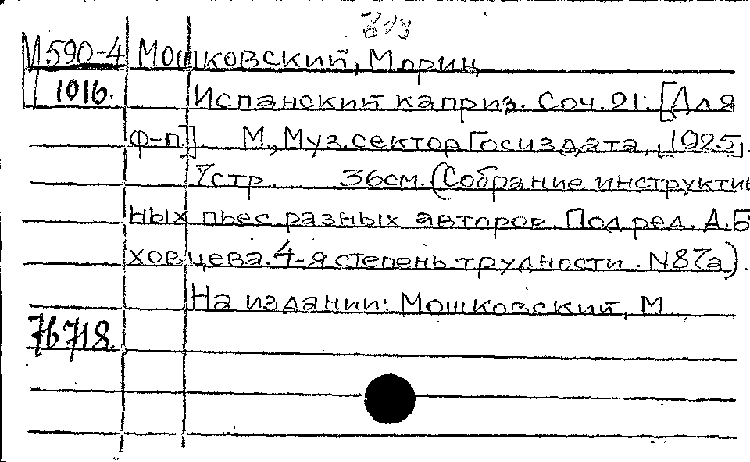 М590-4 Мошковский, Мориц
1016. Испанский каприз. Соч. 21. [Для
ф-п]. М., Муз. сектор Госиздата, [1925].
7 стр. 36 см. (Собрание инструктив
ных пьес разных авторов. Под ред. А.Б
ховцева. 4-я степень трудности. N87а).
На издании: Мошковский, М.
76718